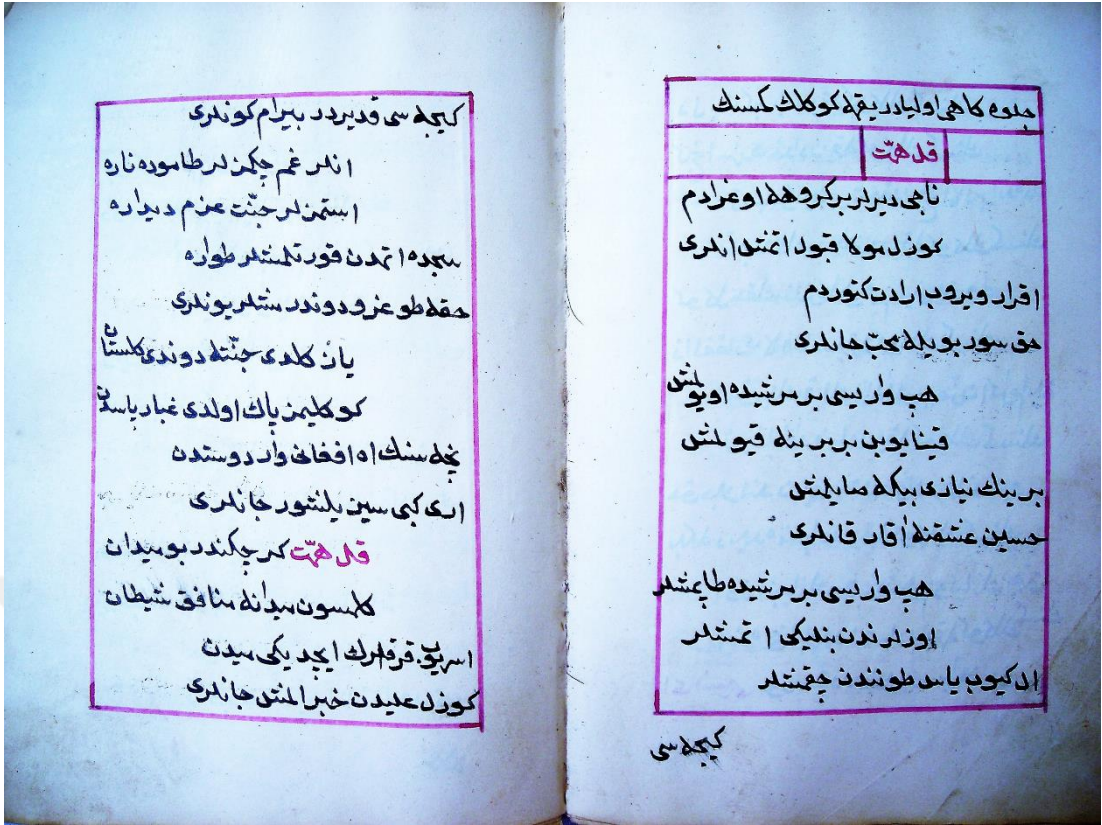 جلوه كاهى اوليادر يقمه كوكلك كمسنك
قل همّت
ناجى ديرلر بر كروهه اوغرادم
كوزل مولا قبول اتمش انلرى
اقرار ويروب ارادت كتوردم
حق سور بويله محب جانلرى
هب واريسى بر مرشيده اويولمش
قينايوبن بر برينه قيولمش
برينك نيازى بيكه صايلمش
حسين عشقنه اقار قانلرى
هب واريسى بر مرشيده طاپمشلر
اوزلرندن بنليكى اتمشلر
ال كيوب ياسد طونندن چقمشلر
كيجه سى
كيجه سى قديردر بيرام كونلرى
انلر غم چكمزلر طاموده ناره
استمزلر جنّت عزم ديداره
سجده اتمدن قورتلمشلر طواره
حقه طوغرو دوندرمشلر يونلرى
يان كلدى جنّته دوندى كلستان
كوكليمز پاك اولدى غبار پاسدن
نچه سنك اه افغانى وار دوستدن
ارى كبى سين يلشور جانلرى
قل همّت كرچكندر بو ميدان
كلمسون ميدانه منافق شيطان
اسريوب قرقلرك ايچديكى ميدن
كوزل عليدن خبر المش جانلرى